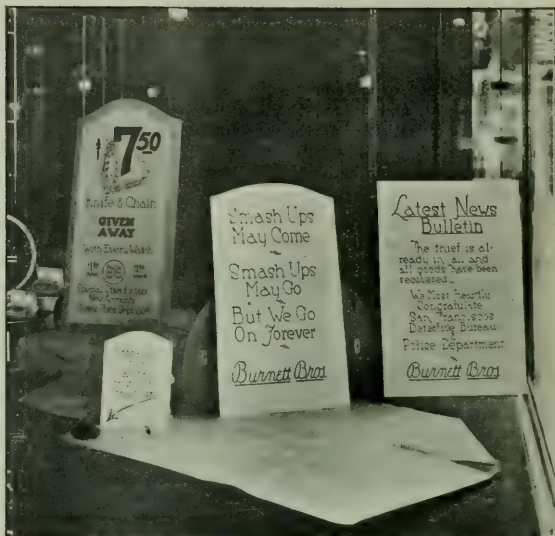 7 50
Knife & Chain
GIVEN
AWAY
With Every Watch
Smash Ups
May Come
Smash Ups
May Go
But We Go
On Forever
Burnett Bros
Latest News
Bulletin
The thief is al-
ready in jail and
all goods have been
recovered.
We Most Heartily
Congratulate
San Francisco's
Detective Bureau
Police Department
Burnett Bros